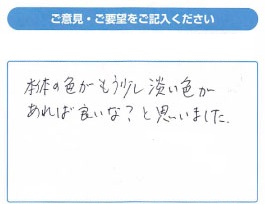 ご意見・ご要望をご記入ください
本体の色がもう少し淡い色が
あれば良いな?と思いました.